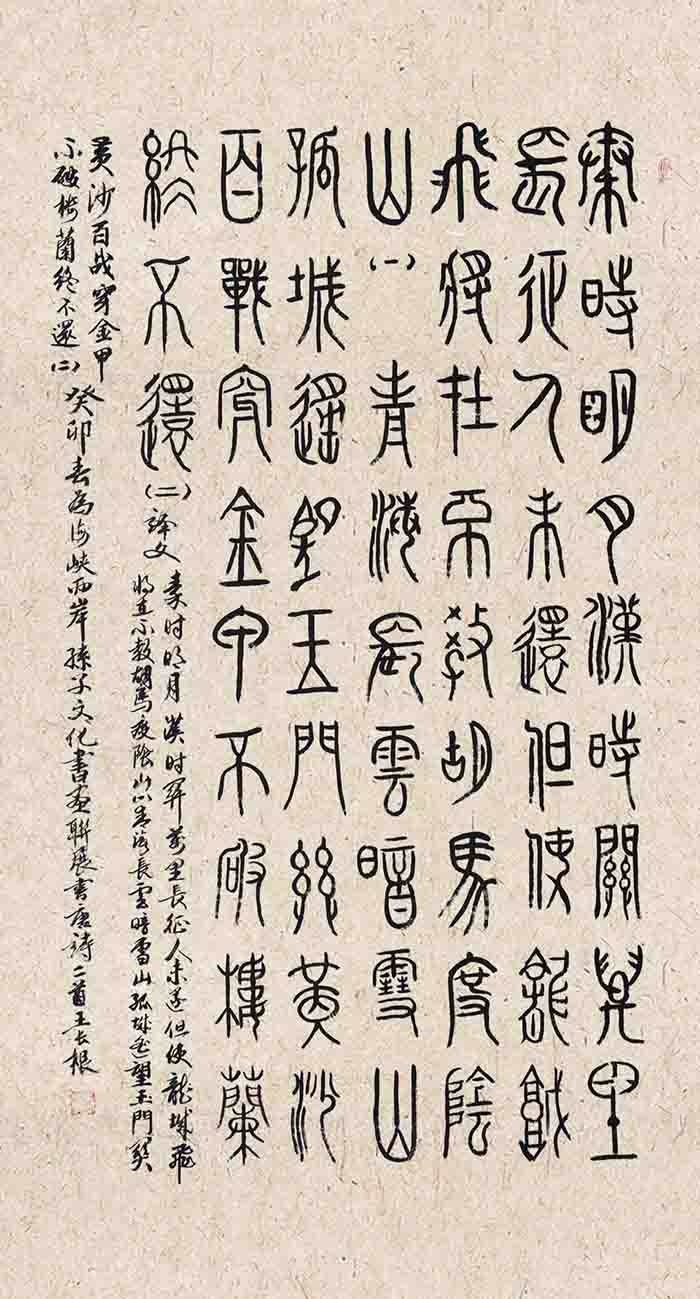 秦時明月漢時關萬里
長征人未還但使龍城
飛將在不教胡馬度陰
山（一）青海長雲暗雪山
孤城遥望玉門關黃沙
百戰穿金甲不破樓蘭
終不還（二）譯文
秦时明月漢时関萬里長征人未還但使龍城飛
将在不教胡馬度陰山（一）青海長雲暗雪山孤城遥望玉門関
黄沙百战穿金甲
不破楼蘭终不還（二）
癸卯春為海峡两岸孫子文化書画聯展書唐詩二首王长根